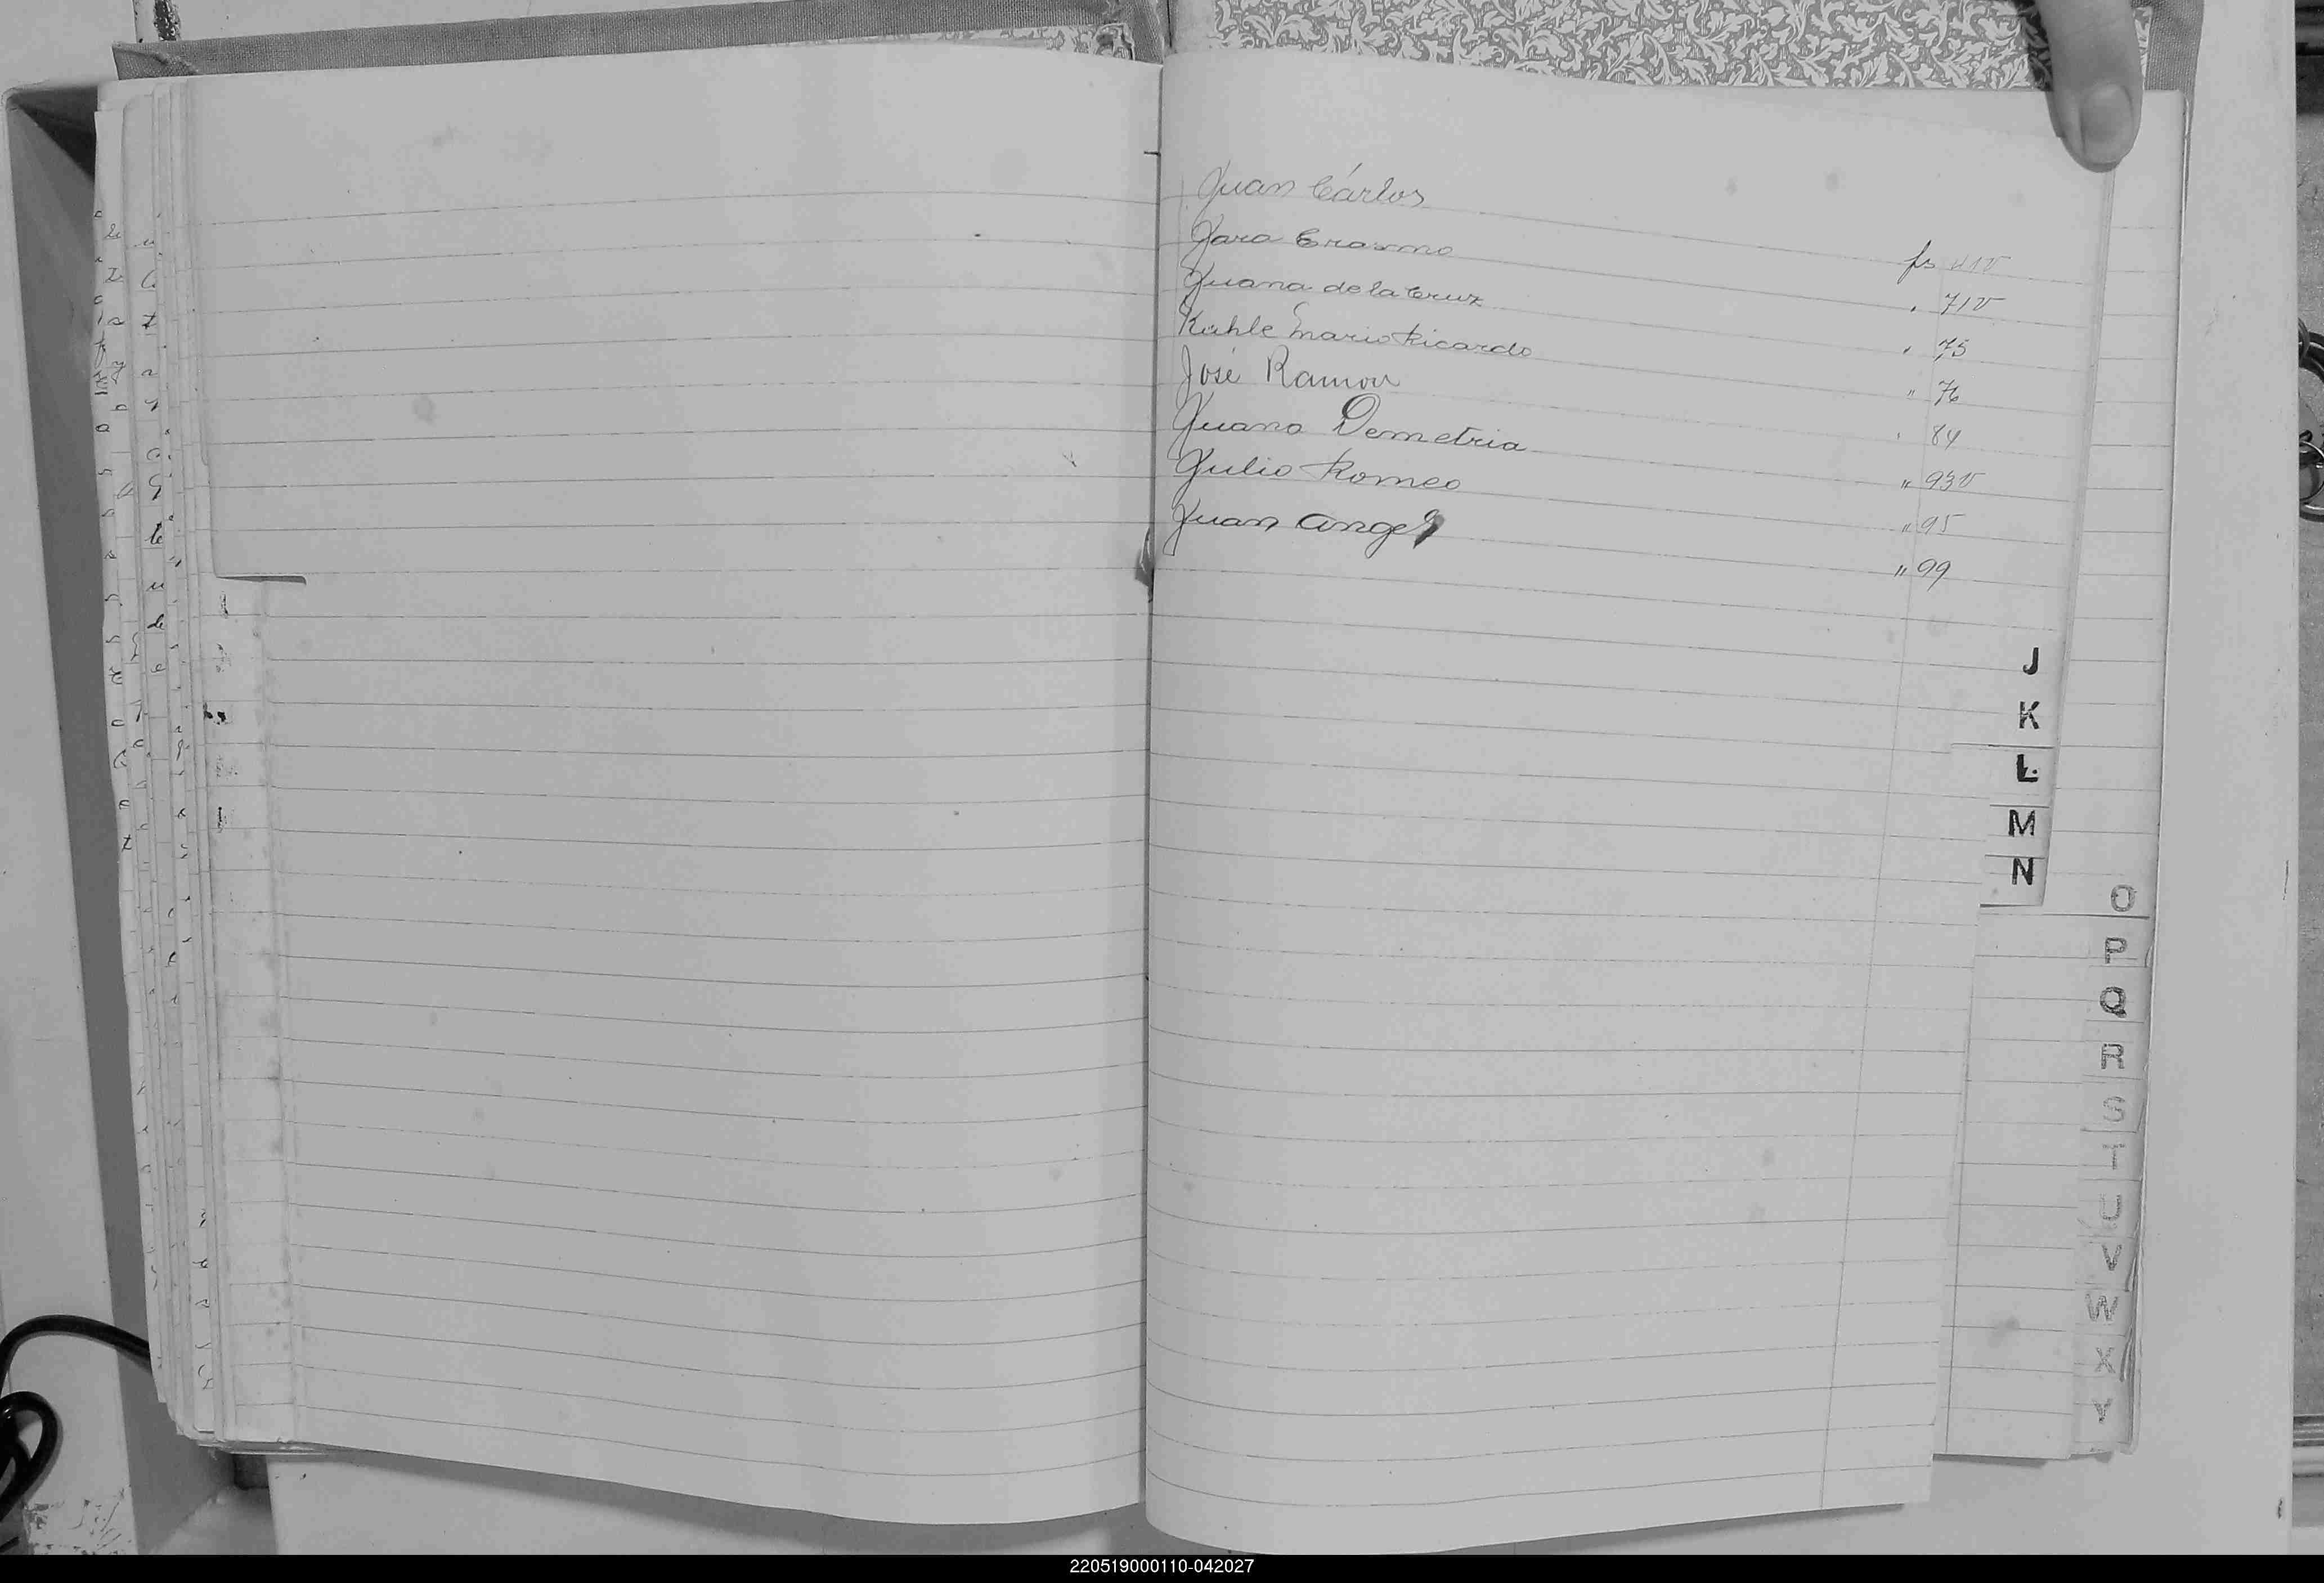 Juan Cárlos fs 41v
Jara Erasmo " 71v
Juana de la Cruz " 75
Kahle Mario Ricardo " 76
José Ramon " 84
Juana Demetria " 93v
Julio Romeo " 95
Juan Angel " 99
J
K
L
M
N
O
P
Q
R
S
T
U
V
W
X
Y
220519000110-042027